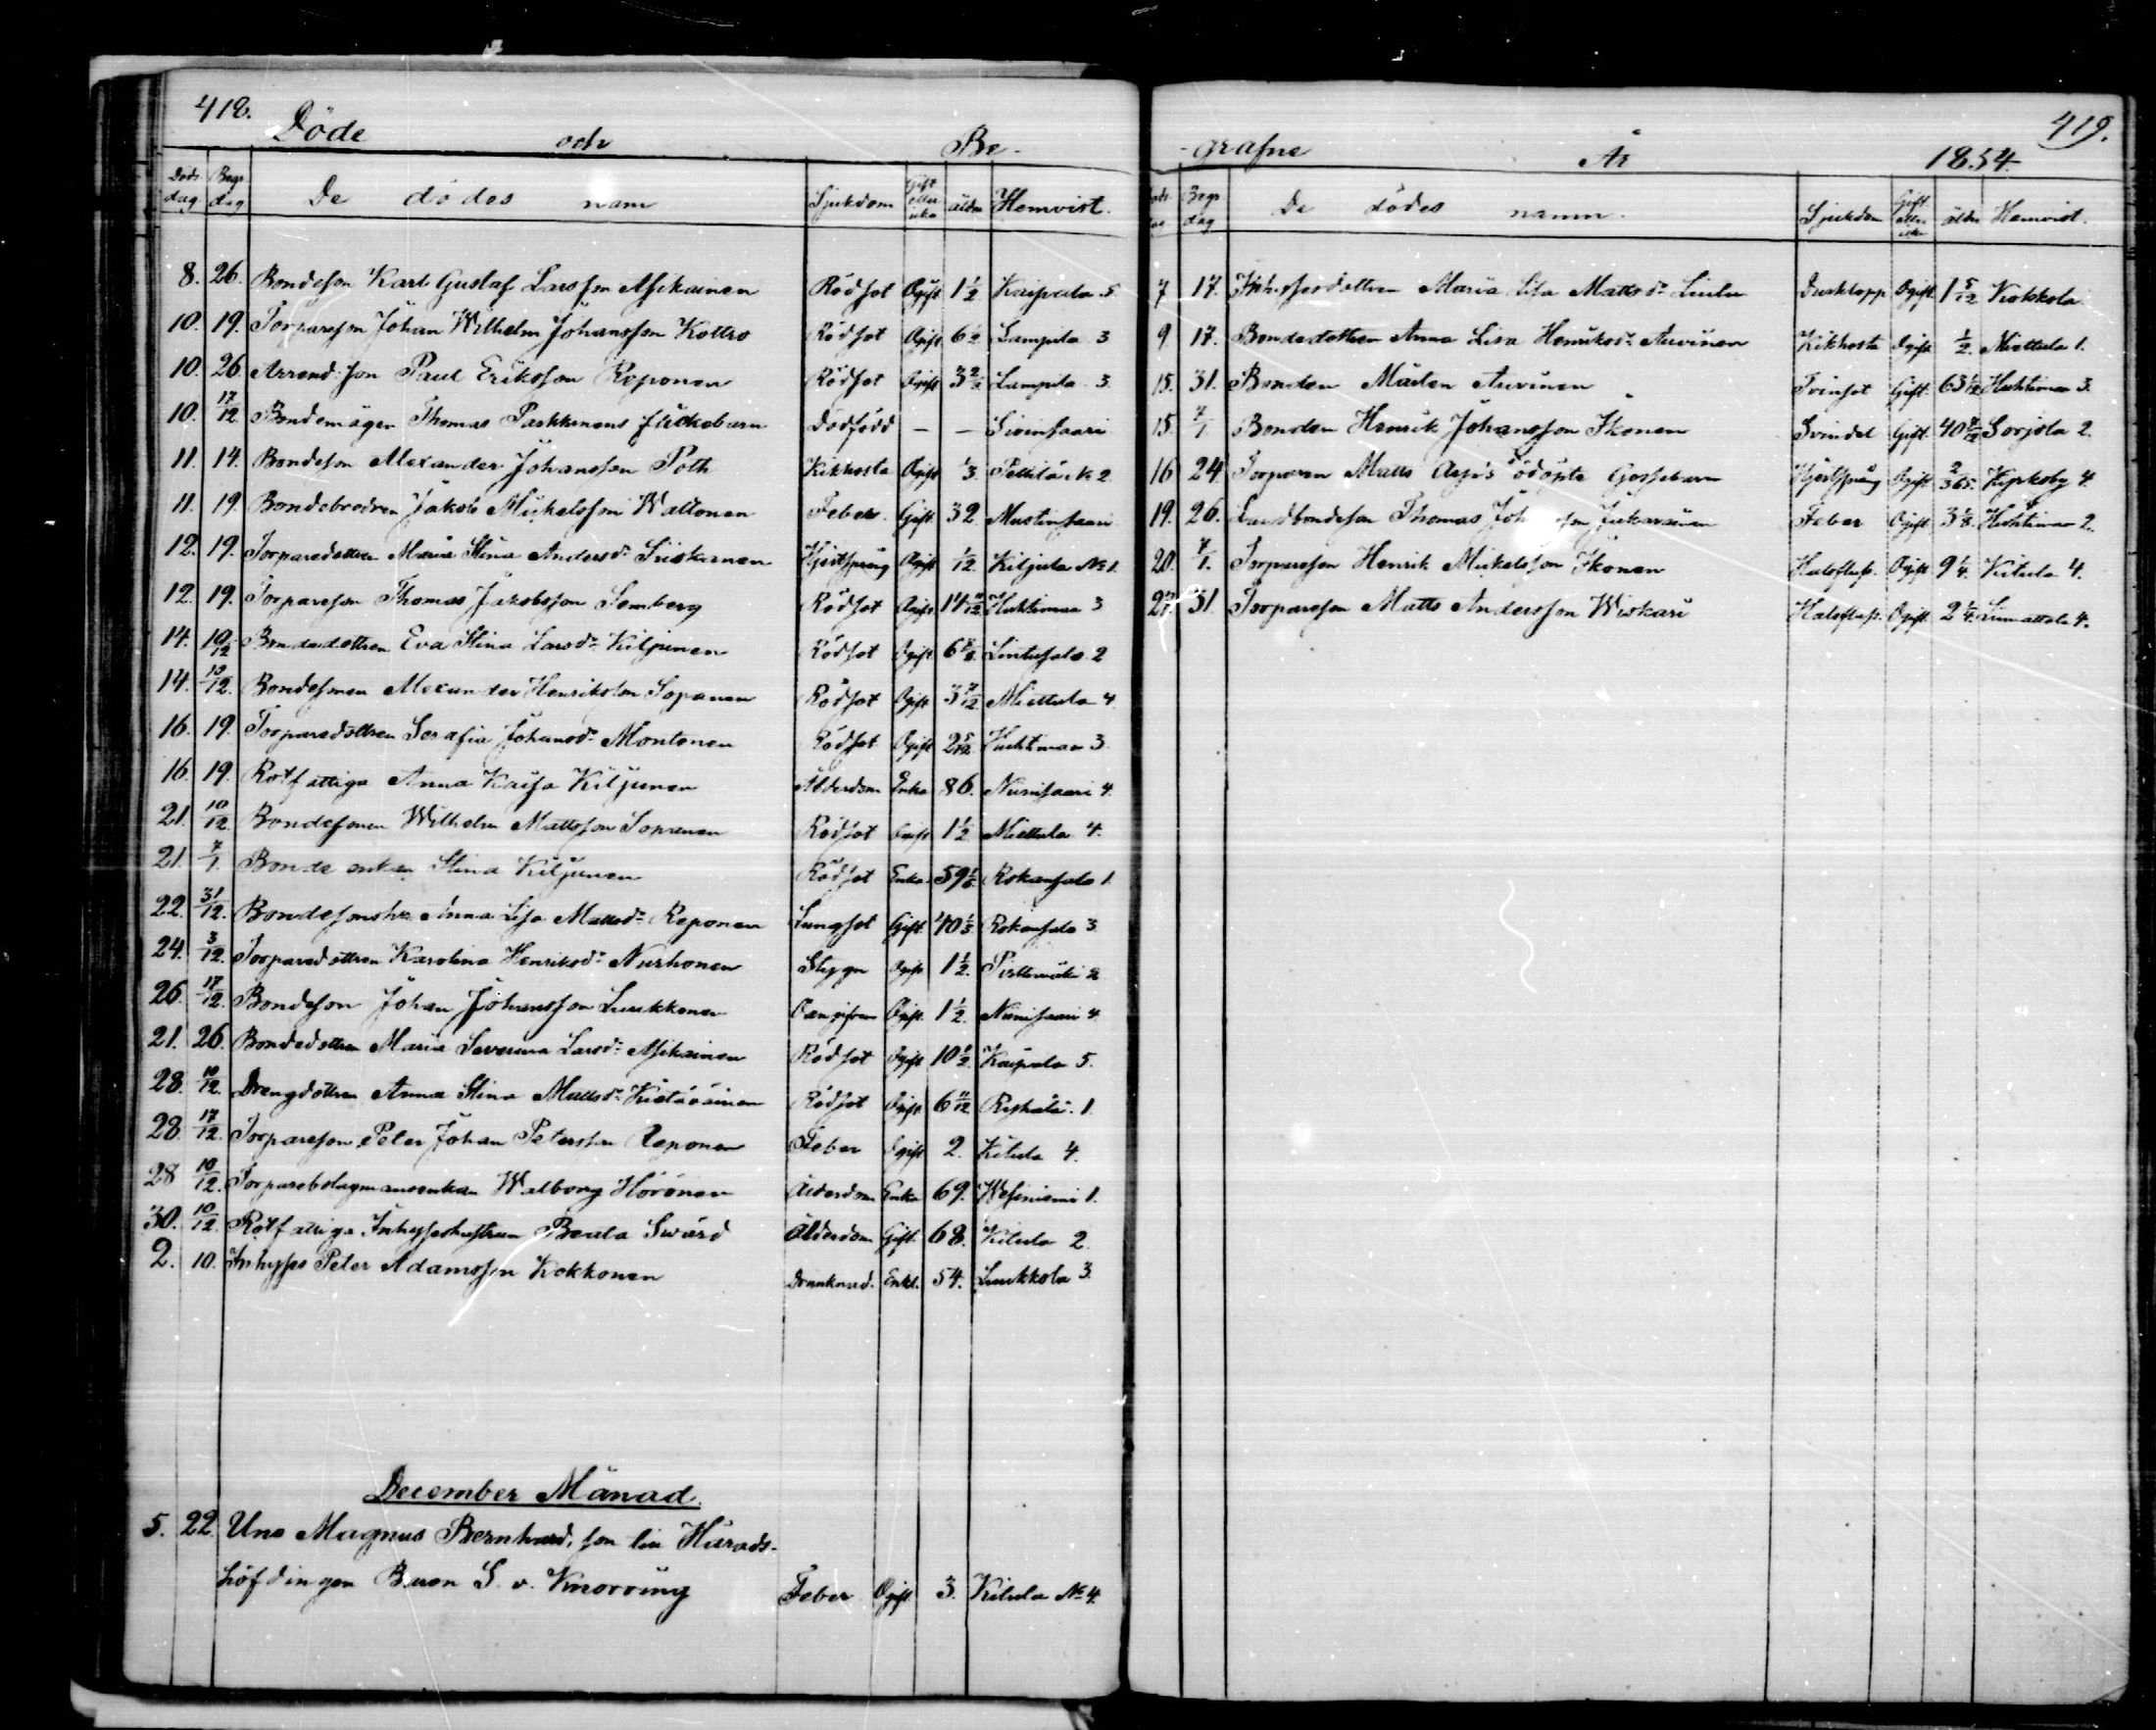 418.
Döde och Be-
Döds dag Begr dag De dödes namn Sjukdom Gift eller icke ålder Hemvist.
8. 26. Bondeson Karl Gustaf Larsson Asikainen Rödsot Ogift 1 1/2 Kaipala 5
10. 19. Torpareson Johan Wilhelm Johansson Kottro Rödsot Ogift 6 1/2 Lampila 3
10. 26 Arrend: son Paul Eriksson Reponen Rödsot Ogift Lampila 3.
10. 17/12 Bondemågen Thomas Parkkinens flickebarn Dödfödd — — Sivinsaari
11. 14. Bondeson Alexander Johansson Poth Kikhosta Ogift 1/3
11. 19. Bondebrodren Jakob Mickelsson Waltonen Feber Gift. 32. Mustinsaari
12. 19. Torparedottren Maria Stina Andersdr Siiskonen Hjertsprång Ogift 1/12. Kiljula No 1.
12. 19. Torpareson Thomas Jakobsson Lemberg Rödsot Ogift Huhtimaa 3
14. 10/12 Bondedottren Eva Stina Larsdr Kiljunen Rödsot Ogift Lintusala 2
14. 10/12. Bondesonen Alexander Henriksson Sopanen Rödsot Ogift 3 7/12. Miettula 4.
16. 19. Torparedottren Serafia Johansdr Montonen Rödsot Ogift 2 5/12. Huhtimaa 3.
16. 19. Rotfattiga Anna Kaisa Kiljunen Ålderdom Enka 86. Nurmisaari 4.
21. 10/12. Bondesonen Wilhelm Mattsson Sopanen Rödsot Ogift 1 1/2 Miettula 4.
21. 7/1. Bonde enkan Stina Kiljunen Rödsot Enka 59 Rokansalo 1.
22. 31/12. Bondesonshu Anna Lisa Mattsdr Reponen Lungsot Gift. 40 1/3 Rokansalo 3.
24. 3/12. Torparedottren Karolina Henriksdr Nurhonen Slygn Ogift 1 1/2.
26. 17/12. Bondeson Johan Johansson Luukkonen Oangifven Ogift. 1 1/2. Nurmisaari 4.
21. 26. Bondedottren Maria Severina Larsdr Asikainen Rödsot Ogift 10 1/2 Kaipala 5.
28. 10/12. Drengdottren Anna Stina Mattsdr Rödsot Ogift 6 11/12 Reskala. 1.
28. 17/12. Torpareson Peter Johan Petersson Reponen Feber Ogift 2. Kitula 4.
28 10/12. Torparebolagmansenkan Walborg Hörönen Ålderdom Enka 69. Wesiniemi 1.
30. 10/12. Rotfattiga Inhyseshustrun Beata Swärd Ålderdom Gift. 68. Kitula 2.
2. 10. Inhyses Peter Adamsson Kokkonen Drunknad. Enkl. 54. Luukkola 3.
December Månad.
5. 22. Uno Magnus Bernhard, son till Härads-
höfdingen Baron S. v. Knorring Feber Ogift 3. Kitula No 4.
419.
-grafne År 1854.
Begr dag De dödes namn. Sjukdom Gift eller icke ålder Hemvist.
7 17. Inhysesdottren Maria Lisa Mattsdr Liulu Ogift. 1 5/12 Kokkola
9 17. Bondedottren Anna Lisa Henriksdr Auvinen Kikhosta Ogift 1/2. Miettula 1.
15. 31. Bonden Mårten Auvinen Tvinsot Gift. 63 1/12 Huhtimaa 3.
15. 7/1. Bonden Henrik Johansson Ikonen Svindel Gift. Sorjola 2.
16 24. Torparen Matts odöpte Gossebarn Hjertsprång Ogift 2/365. Kyrkoby 4.
19. 26. Lundbondeson Thomas Feber Ogift 3 1/8. Huhtimaa 2.
20. 7/1. Torpareson Henrik Mickelsson Ikonen Halsfluss. Ogift 9 1/4. Kitula 4.
27. 31. Torpareson Matts Andersson Wiskari Halsfluss. Ogift. 2 1/4. Liimattala 4.